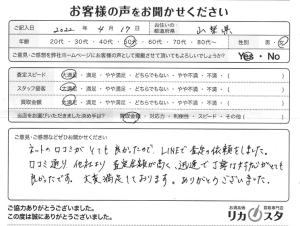 お客様の声をお聞かせください
ご記入日 2022年4月17日 お住いの都道府県 山梨県
年齢 20代・30代・40代・50代・60代・70代・80代～ 性別 男・女
ご意見・ご感想を弊社ホームページにお客様の声として掲載させて頂いてもよろしいでしょうか? Yes・No
査定スピード 大満足・満足・やや満足・どちらでもない・やや不満・不満・( )
スタッフ接客 大満足・満足・やや満足・どちらでもない・やや不満・不満・( )
買取金額 大満足・満足・やや満足・どちらでもない・やや不満・不満・( )
当店をお選びいただきました決め手は? 買取金額・対応力・利便性・スピード・その他( )
ご意見・ご感想などぜひお聞かせください
ネットの口コミがとても良かったので、LINEで査定の依頼をしました。
口コミ通り 他社より査定金額が高く、迅速で丁寧な対応がとても
良かったです。大変満足しております。ありがとうございました。
ご協力ありがとうございました。
この度は誠にありがとうございました。
お酒高価買取専門店
リカスタ